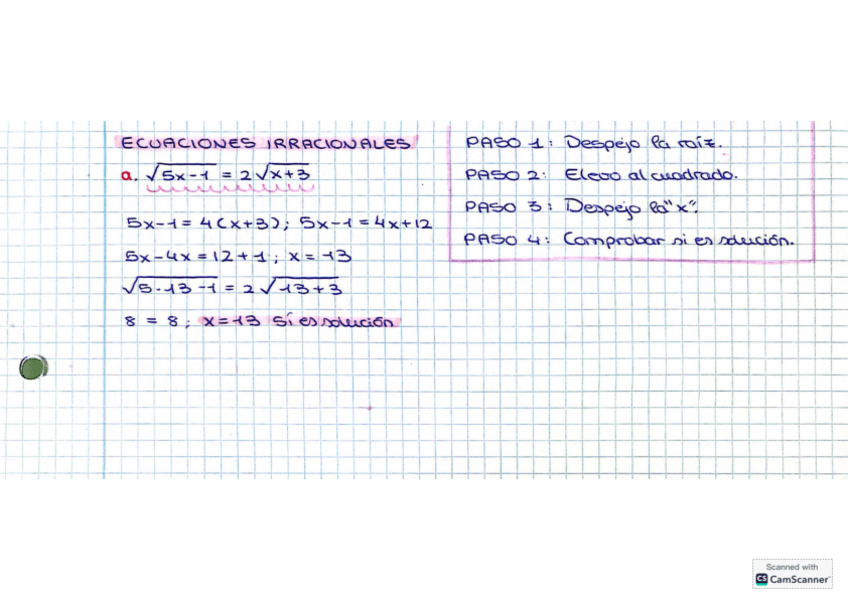 ECUACIONES IRRACIONALES
a. √5x-1 = 2√x+3
5x-1 = 4(x+3); 5x-1 = 4x+12
5x-4x = 12+1; x = 13
√5·13-1 = 2√13+3
8 = 8; x=13 Sí es solución
PASO 1: Despejo la raíz.
PASO 2: Elevo al cuadrado.
PASO 3: Despejo la "x".
PASO 4: Comprobar si es solución.
Scanned with
CS CamScanner